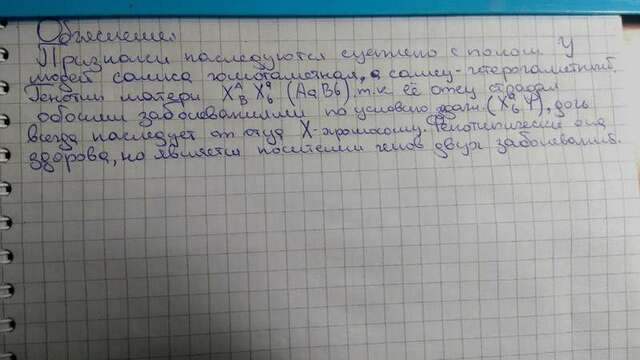 Объяснение:
Признаки наследуются сцеплено с полом У
людей самка гомогаметная, а самец - гетерогаметный.
Генотип матери X^A_B X^a_b (AaBb), т.к. её отец страдал
обоими заболеваниями по условию задачи (X^a_b Y), дочь
всегда наследует от отца X-хромосому. Фенотипически она
здорова, но является носителем генов двух заболеваний.